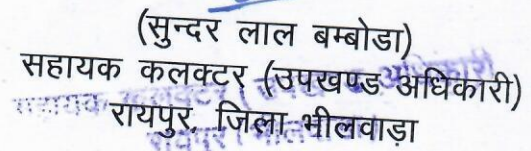 (सुन्दर लाल बम्बोडा)
सहायक कलक्टर (उपखण्ड अधिकारी)
रायपुर, जिला भीलवाड़ा